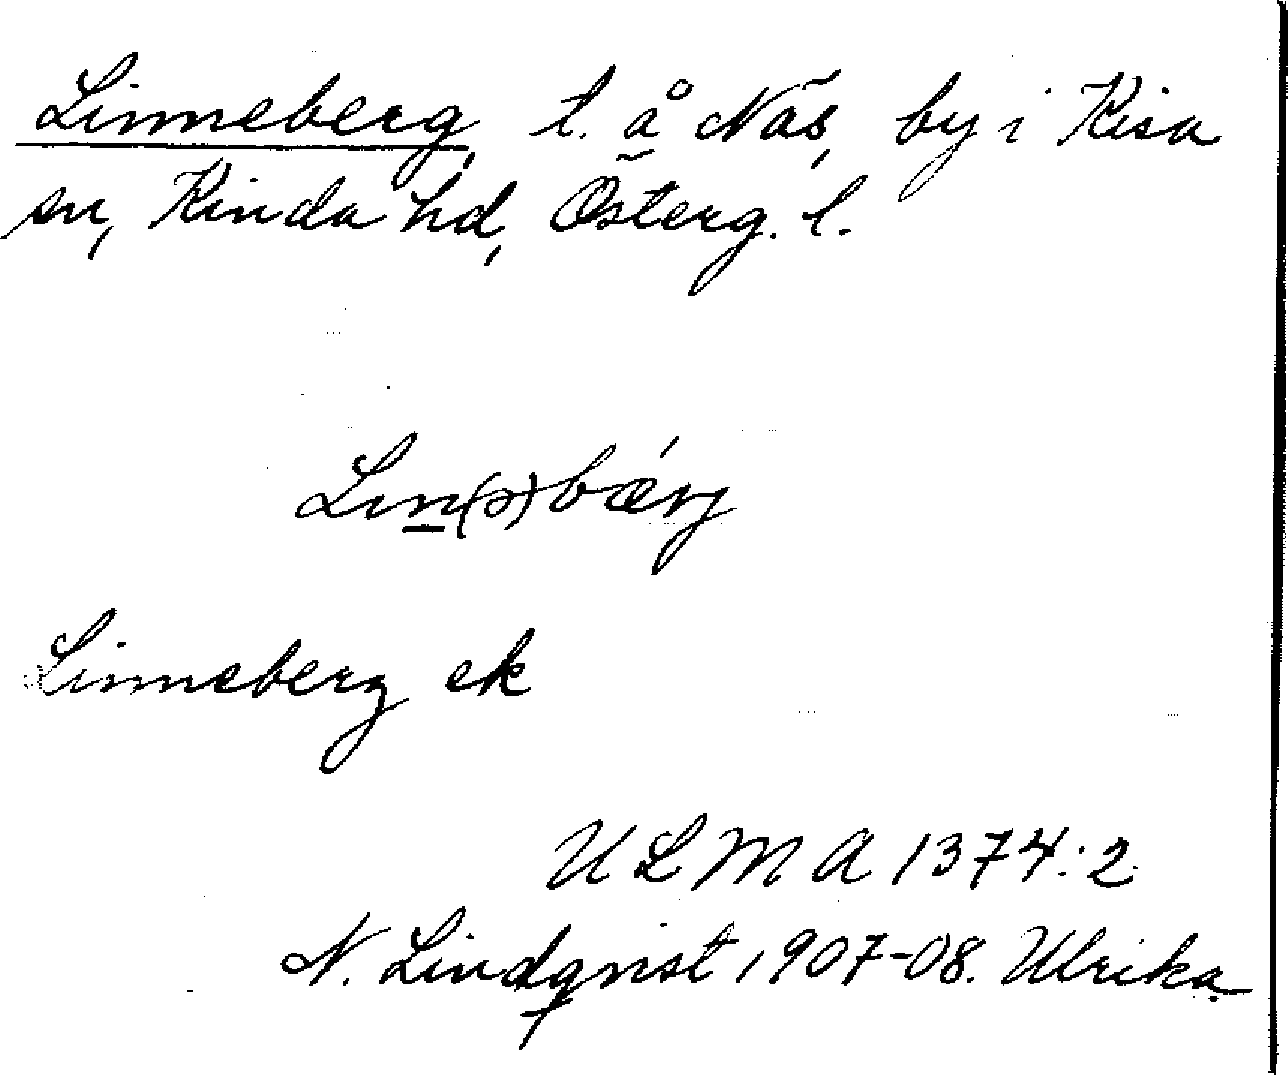 Linneberg, t. å Näs, by i Kisa
sn, Kinda hd, Österg. l.
Lın(ə)bǽrj
Linneberg ek
ULMA 1374:2
N. Lindqvist 1907-08. Ulrika